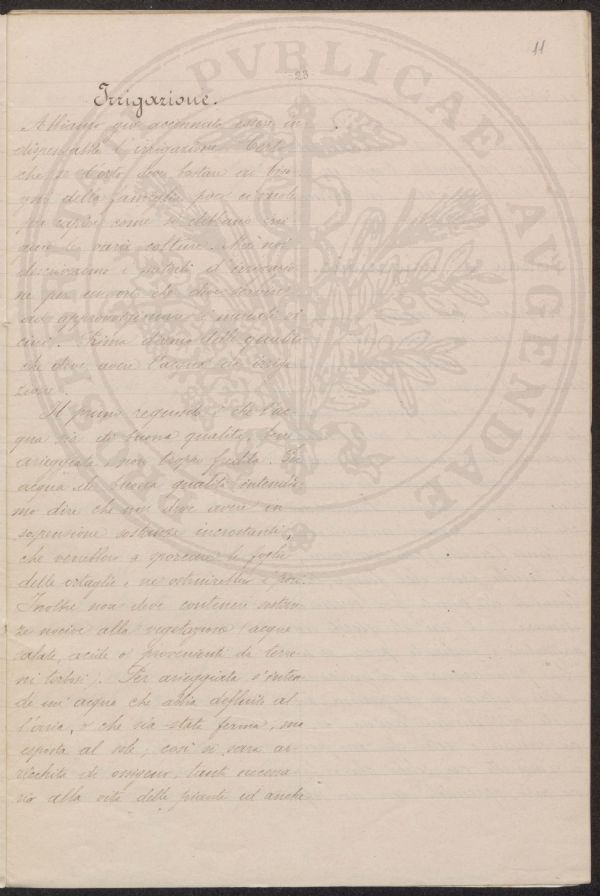 11
23
Irrigazione.
Abbiamo già accennato essere in
dispensabile l'irrigazione. Certo
che se l'orto deve bastare ai biso
gni della famiglia poco ci vuole
per capire come si debbano irri
gare le varie colture. Ma noi
descriviamo i metodi d'irrigazio
ne per un orto che deve servire
ad approvvigionare i mercati vi
cini. Prima diremo delle qualità
che deve avere l'acqua di irriga
zione.
Il primo requisito è che l'ac-
qua sia di buona qualità, bene
arieggiata e non troppo fredda. Per
acqua di buona qualità intendia
mo dire che non deve avere in
sospensione sostanze incrostanti,
che verrebbero a sporcare le foglie
delle ortaglie, e ne ostruirebbero i pori.
Inoltre non deve contenere sostan
ze nocive alla vegetazione (acque
salate, acide o provenienti da terre
ni torbosi). Per arieggiata s'inten
de un'acqua che abbia defluito al
l'aria, o che sia stata ferma, ma
esposta al sole, così si sarà ar
ricchita di ossigeno, tanto necessa
rio alla vita delle piante ed anche
PVBLICAE
AVGENDAE